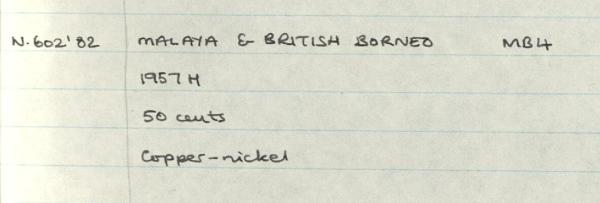 N.602'82 MALAYA & BRITISH BORNEO MB4
1957 H
50 cents
Copper-nickel